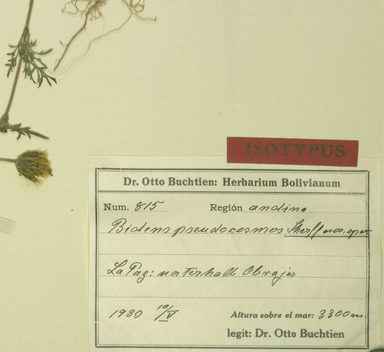 ISOTYPUS
Dr. Otto Buchtien: Herbarium Bolivianum
Num. 815 Región andina
Bidens pseudocosmos Sherff
La Paz: unterhalb Obrajes
1930 10/V Altura sobre el mar: 3300 m.
legit: Dr. Otto Buchtien